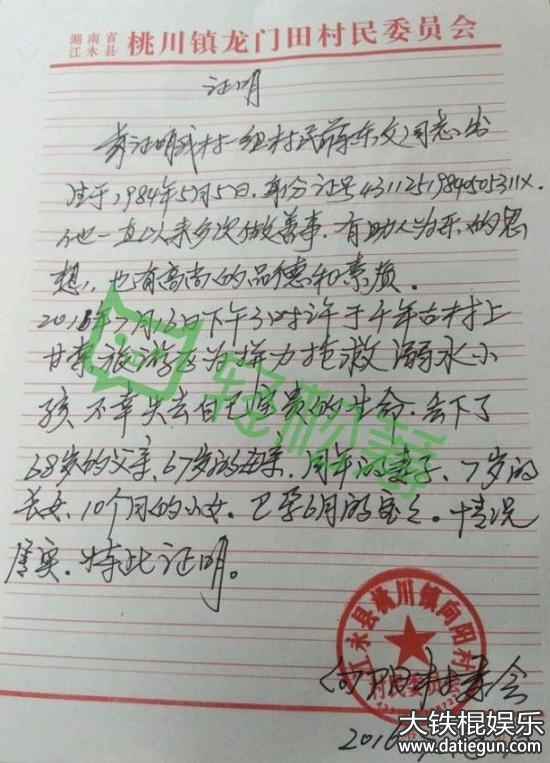 湖南省
江永县 桃川镇龙门田村民委员会
证明
兹证明我村一组村民蒋东文同志,出
生于1984年5月5日.身份证号
他一直以来多次做善事.有助人为乐的思
想,也有高尚的品德和素质.
2016年7月16日下午3时许于千年古村上
甘棠旅游区为 力抢救溺水小
孩不幸失去自己宝贵的生命.丢下了
68岁的父亲、67岁的母亲、同年的妻子、7岁的
长女、10个月的小女.已孕6月的宝宝.情况
属实.特此证明。
轻松筹
江永县桃川镇向阳村
村民委员会
向阳村委会
2016
大铁棍娱乐
www.datiegun.com